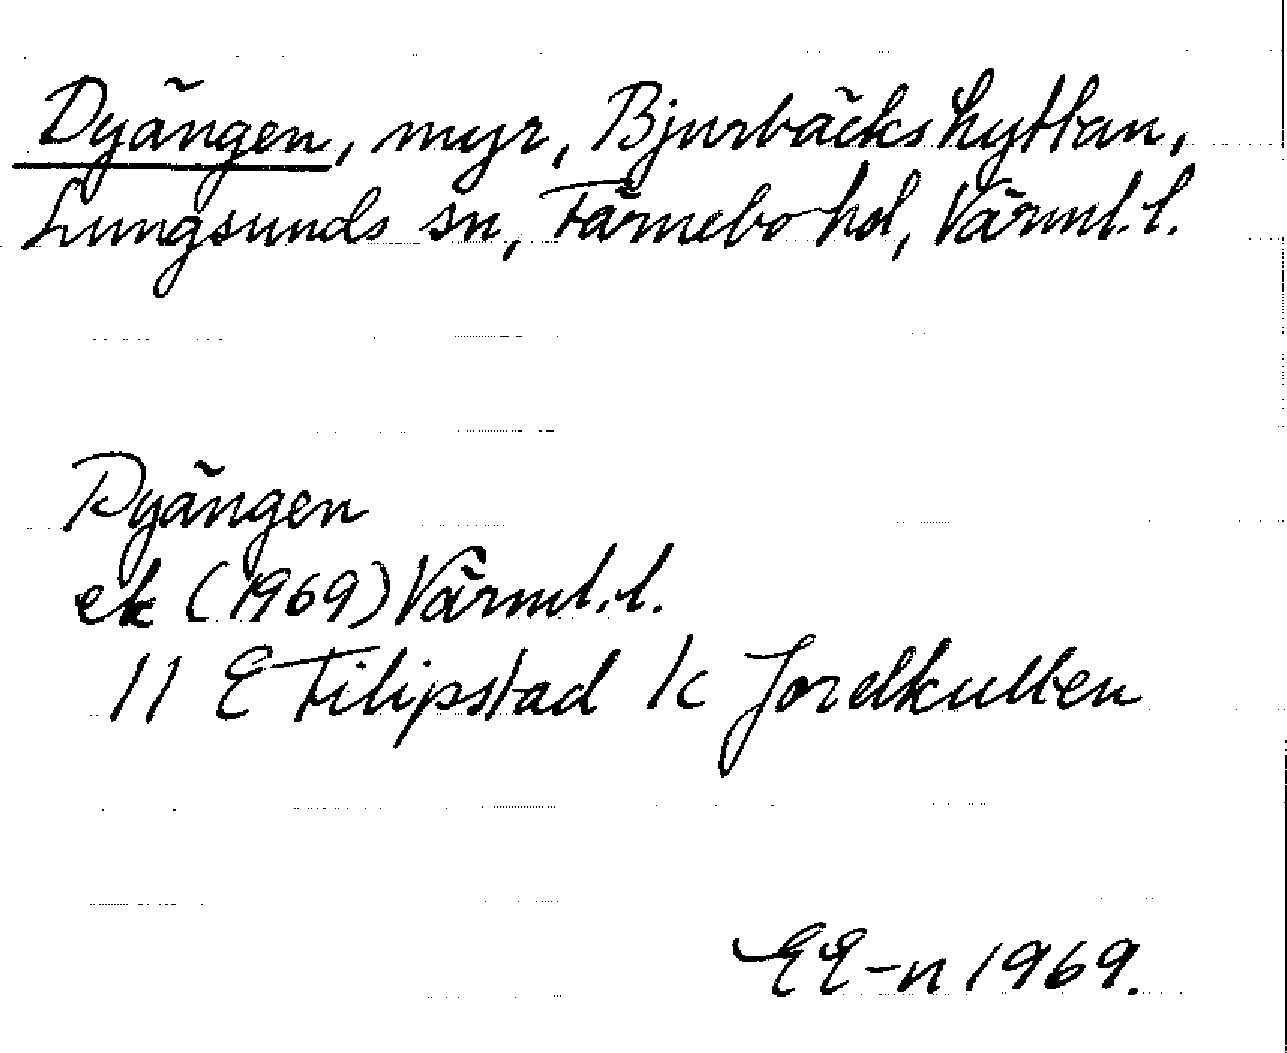 Dyängen, myr, Bjurbäckshyttan,
Lungsunds sn, Färnebo hd, Värml. l.
Dyängen
ek (1969) Värml. l.
11 E Filipstad 1c Jordkullen
EE-n 1969.